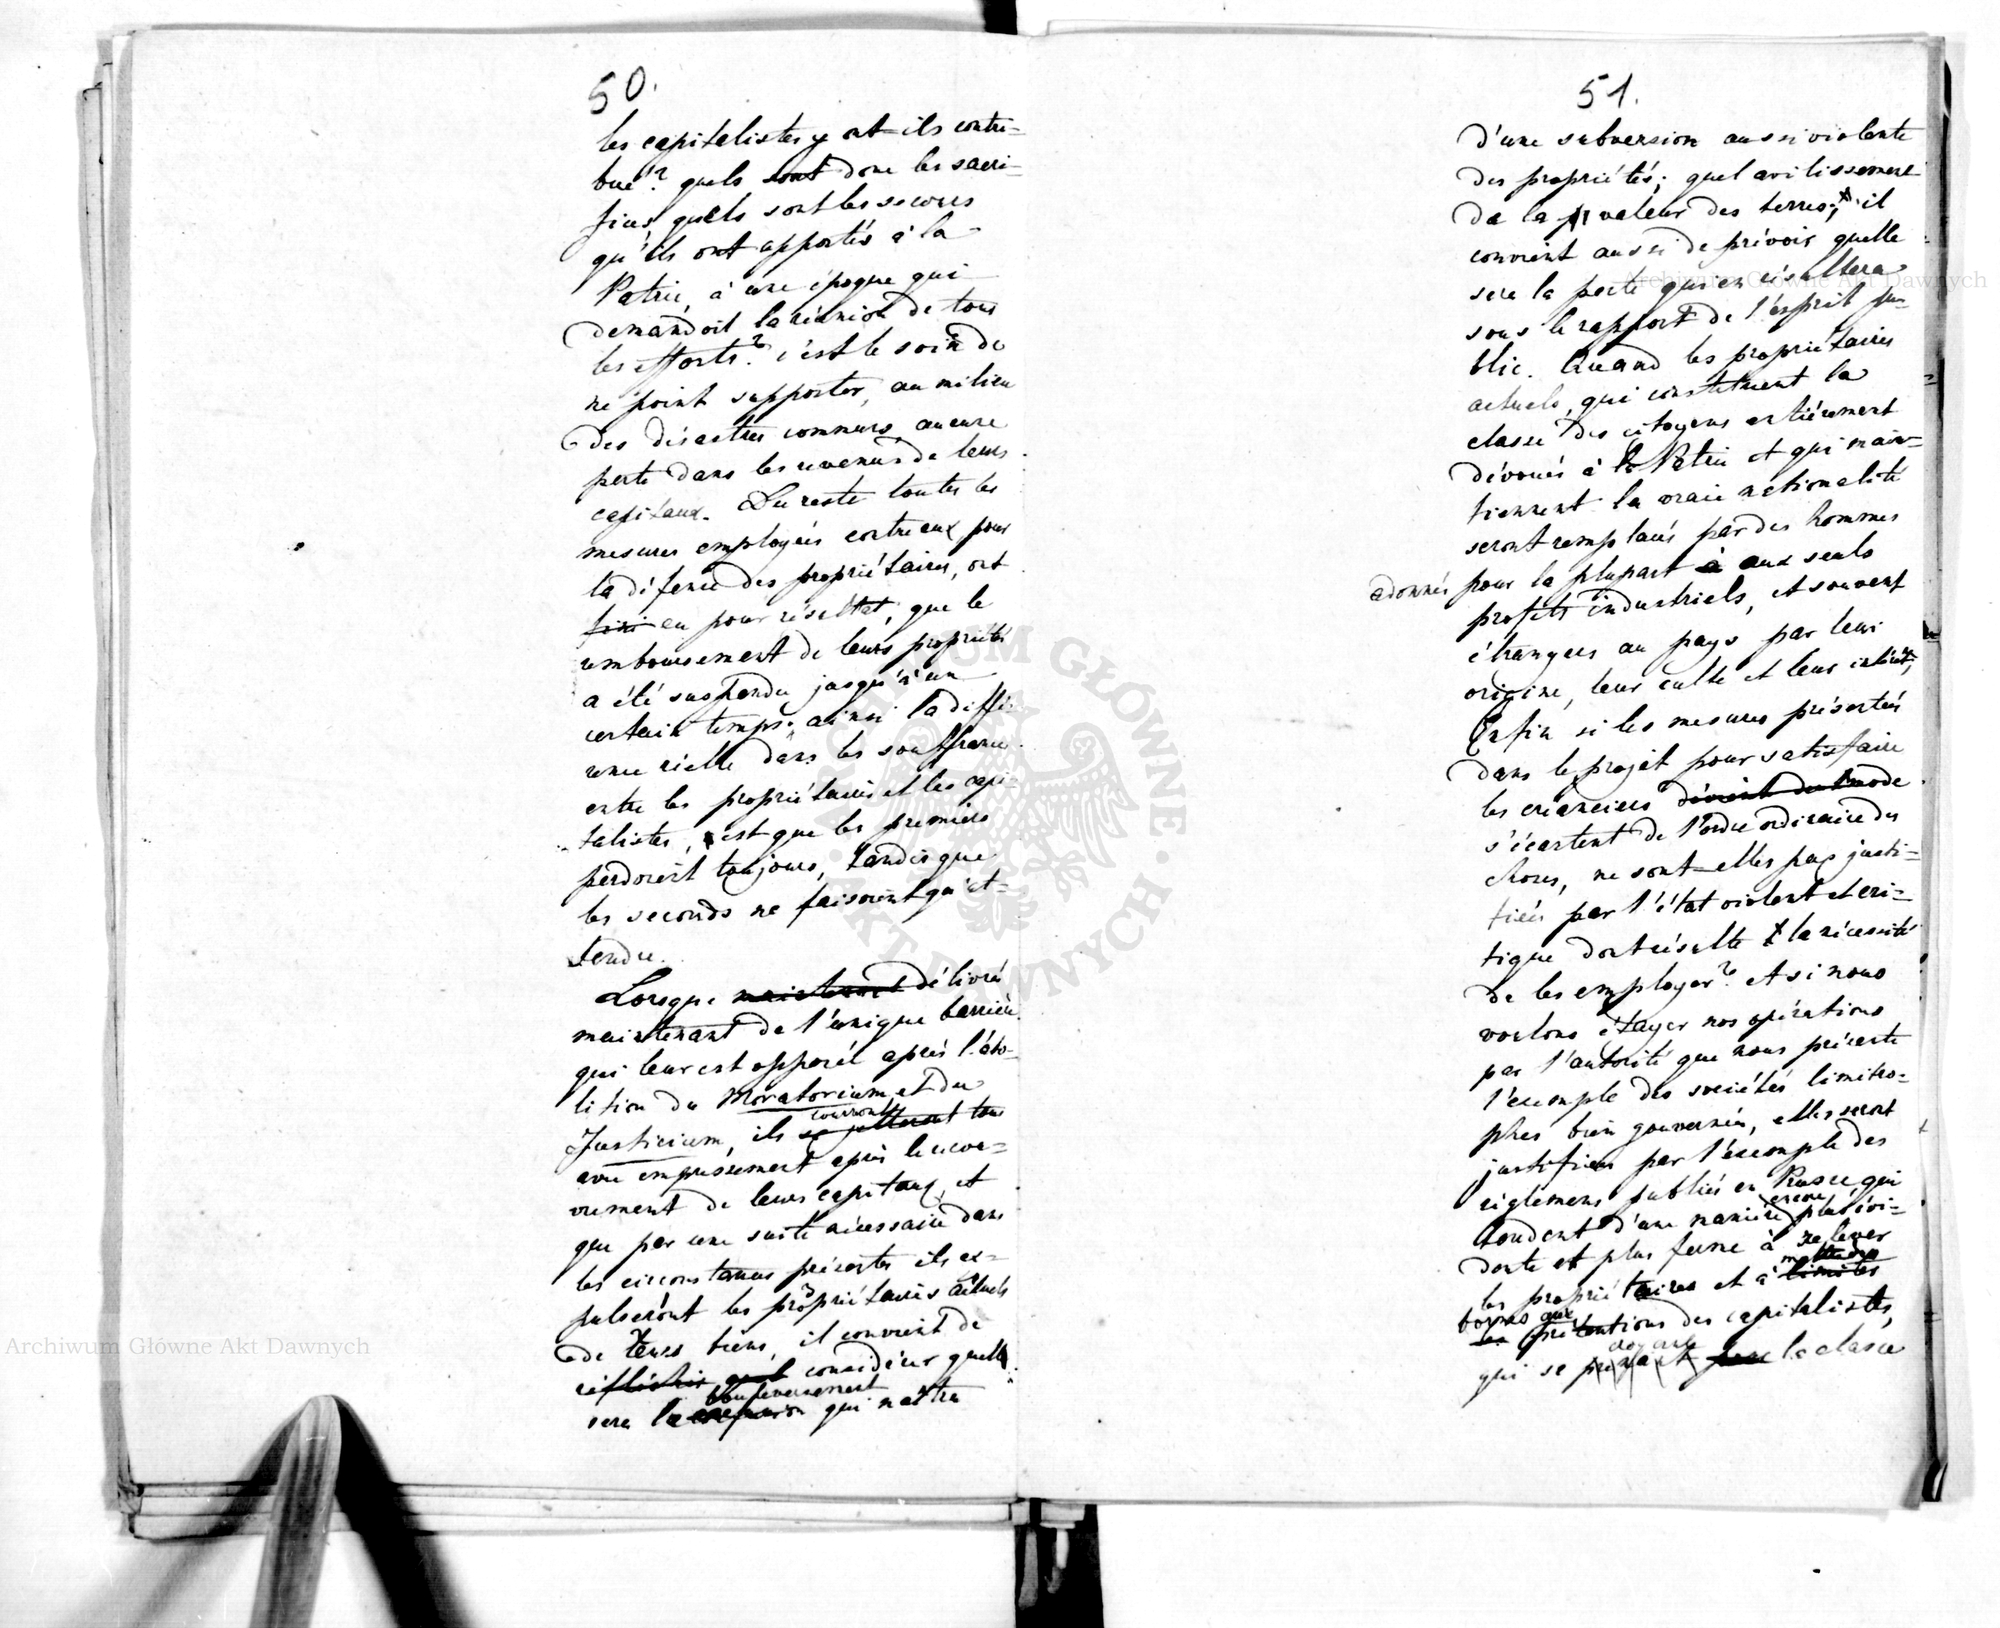 50.
les capitalistes y ont-ils contri=
bué? quels sont donc les sacri-
fices, quels sont les secours
qu'ils ont apportés à la
Patrie, à une époque qui
demandoit la réunion de tous
les efforts? c'est le soin de
ne point supporter, au milieu
des désastres communs, aucune
perte dans les revenus de leurs
capitaux. Du reste toutes les
mesures employées contre eux, pour
la défense des propriétaires, ont
eu pour résultat, que le
remboursement de leurs propriétés
a été suspendu jusqu'à un
certain temps; ainsi la diffé-
rence réelle dans les souffrances
entre les propriétaires et les capi-
talistes, est que les premiers
perdoient toujours, tandis que
les seconds ne faisoient qu'at-
tendre.
Lorsque maintenant délivrés
maintenant de l'unique barrière
qui leur est opposée après l'abo-
lition du Moratorium et du
courront
Justicium, ils se jetteront tous
avec empressement après le recou=
vrement de leurs capitaux, et
que par une suite nécessaire dans
les circonstances présentes ils ex-
pulseront les propriétaires actuels
de leurs biens, il convient de
réfléchir quel considérer quelle
bouleversement
sera la qui naîtra
51.
d'une subversion aussi violente
des propriétés; quel avilissement
de la valeur des terres; il
convient aussi de prévoir quelle
sera la perte qui en résultera
sous le rapport de l'esprit pu-
blic. Quand les propriétaires
actuels, qui constituent la
classe des citoyens entièrement
dévoués à la Patrie et qui main-
tiennent la vraie nationalité
seront remplacés par des hommes
adonnés pour la plupart à aux seuls
profits industriels, et souvent
étrangers au pays par leur
origine, leur culte et leur intérêt;
Enfin si les mesures présentées
dans le projet pour satisfaire
les créanciers dévient du mode
s'écartent de l'ordre ordinaire des
choses, ne sont-elles pas justi=
fiées par l'état violent et cri=
tique dont résulte la nécessité
de les employer? Et si nous
voulons étayer nos opérations
par l'autorité que nous présente
l'exemple des sociétés limitro=
phes bien gouvernées, elles seront
justifiées par l'exemple des
règlemens publiés en Prusse qui
encore
tendent d'une manière plus évi=
dente et plus ferme à relever
mettre des
les propriétaires et à limiter
bornes aux
les prétentions des capitalistes,
qui se la classe